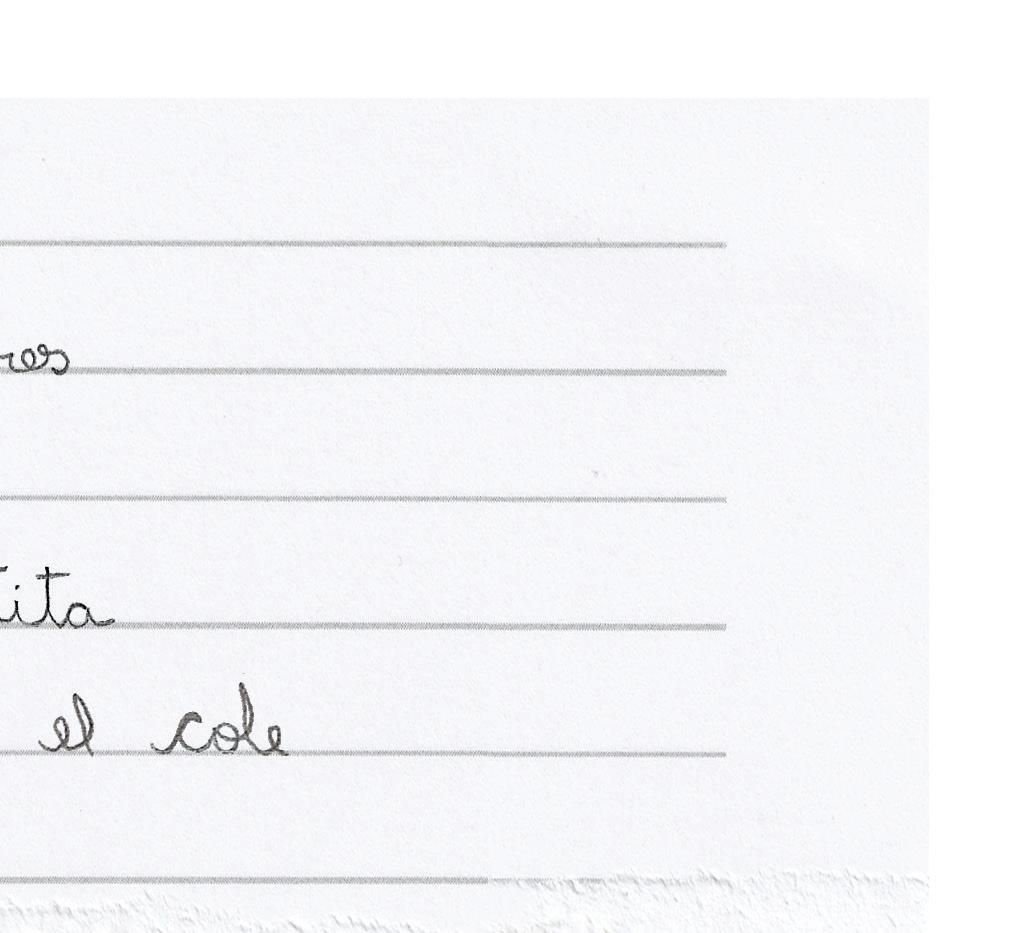 res
tita
el cole